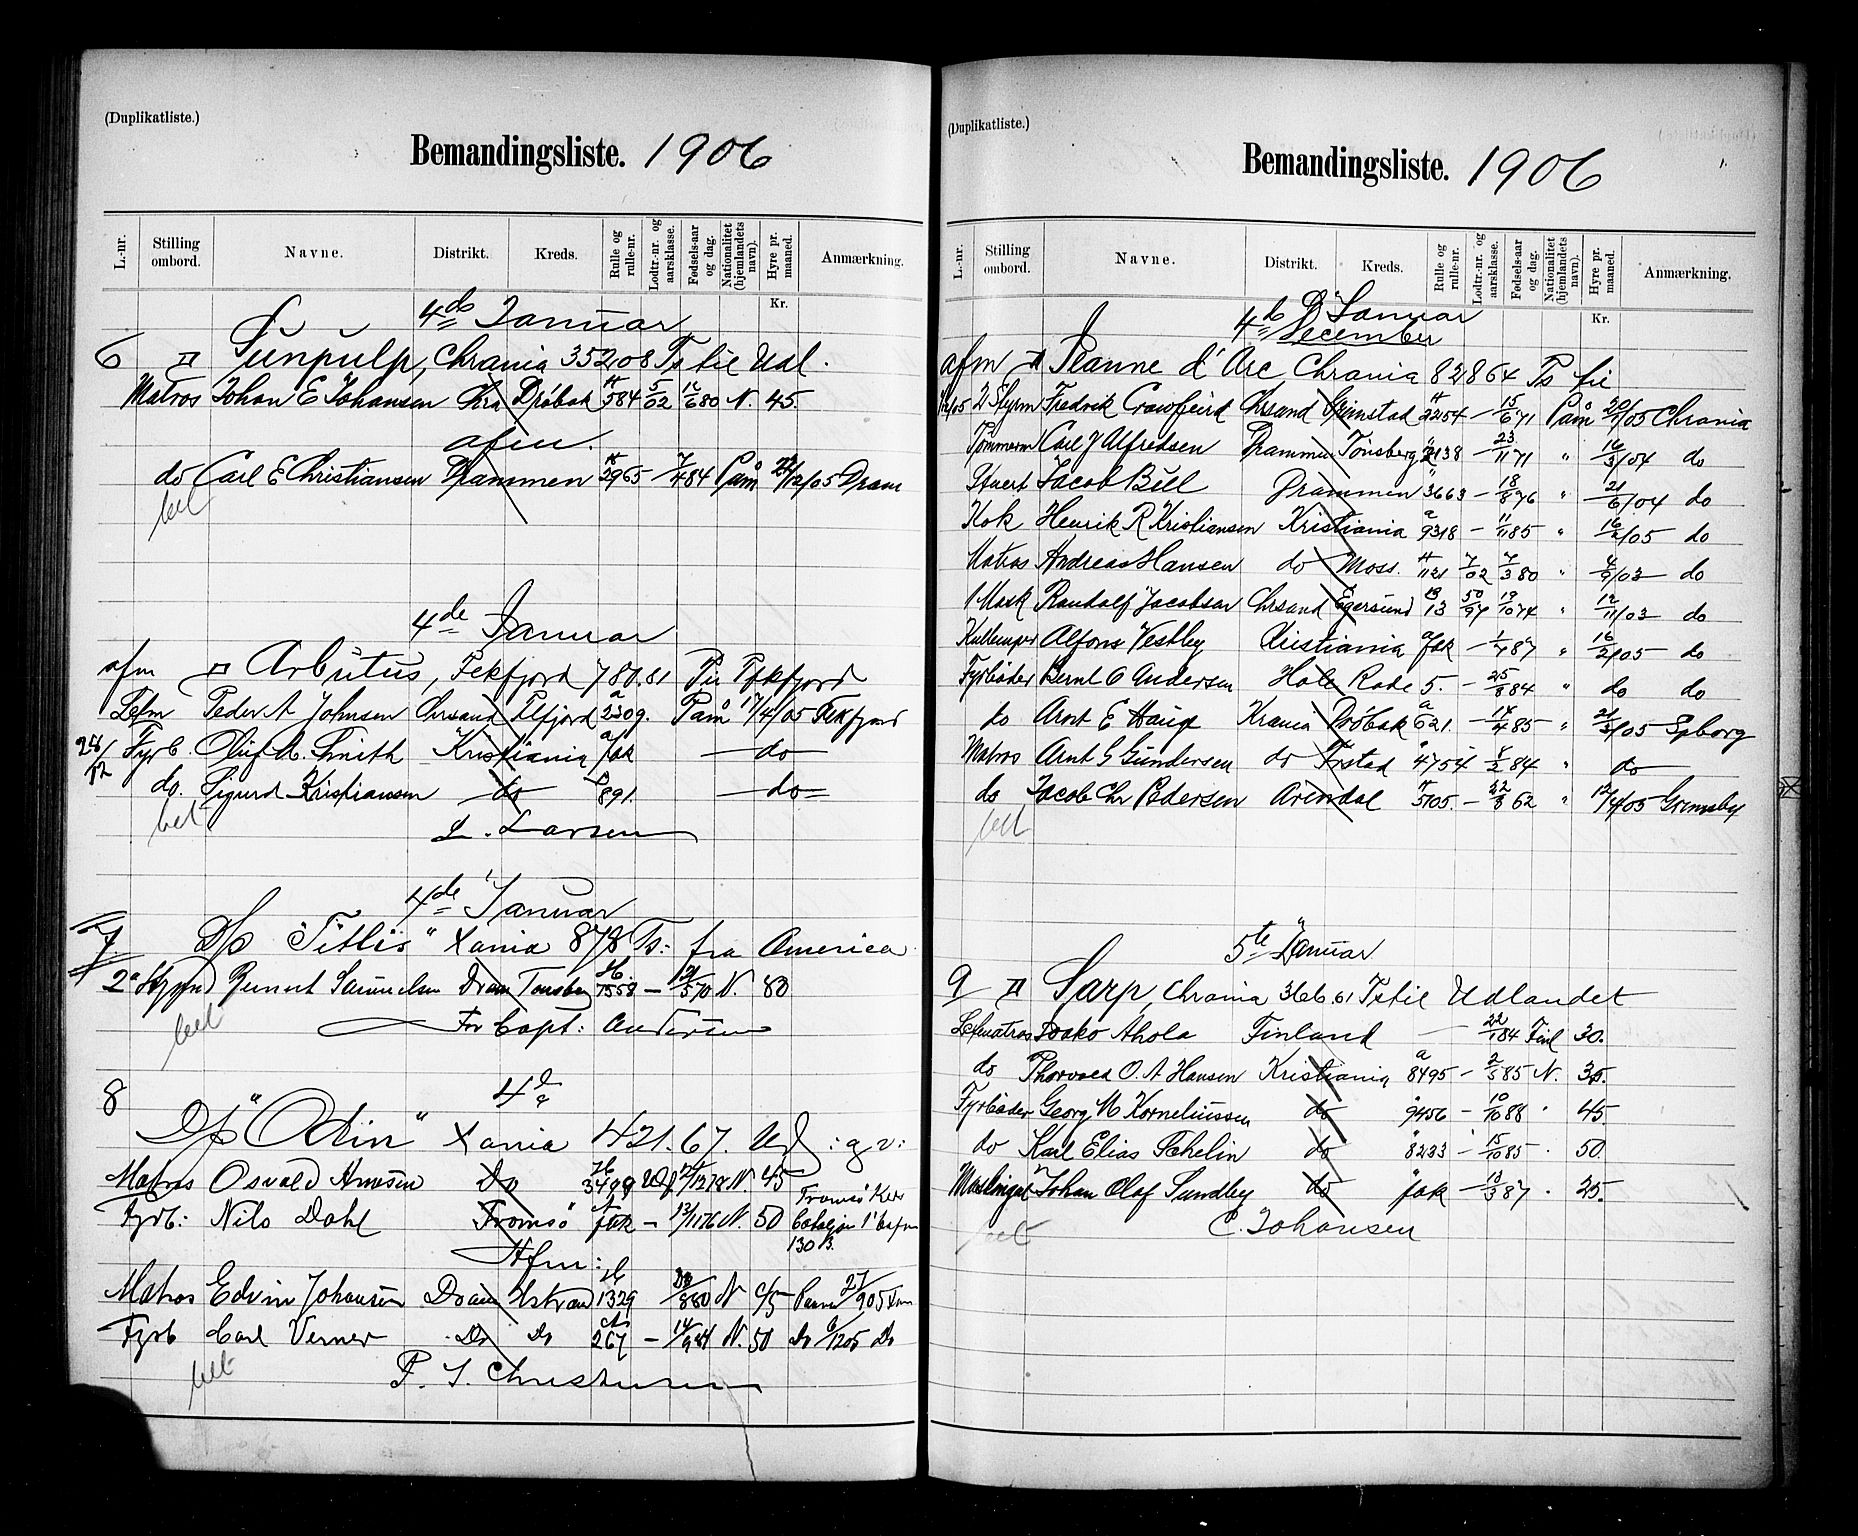 (Duplikatliste.)
Bemandingsliste. 1906
L.-nr. Stilling ombord. Navne. Distrikt. Kreds. Rulle og rulle-nr. Lodtr.-nr. og aarsklasse. Fødsels-aar og dag. Nationalitet (hjemlandets navn). Hyre pr. maaned. Anmærkning.
Kr.
4de Januar
6 Sunpulp, Chrania 35208 Ts til Udl.
Matros Johan E Johansen Chra Drøbak 584 5/02 12/6 80 N. 45.
afm.
do Carl E Christiansen Drammen 2965 – 7/4 84 Paam 29/12/05 Dram
bet
4de Januar
afm Arbutus, Fekfjord 780.81 Til Fekfjord
Letm Peder A Johnsen Chrsand 2309. Paam 17/4/05 Fekfjord
28/12 Fyrb. Oluf M. Smith Kristiania fak – do –
do. Sigurd Kristiansen do 891. – do –
bet L. Larsen
4de Januar
7 D/s "Titlis" Xania 878 Ts: fra America
2n Styrmd Samuelsen Dram Tønsberg 1558 – 5/70 N. 80
bet For Capt: Andersen
8 4de
D/s "Odin" Xania 421.67. Ud : g v:
Matros Osvald Arnesen Do 3499 12 78 N. 45
Fyrb: Nils Dahl Tromsö fak – 13/11 76 N. 50 Tromsö
130 B.
Afm:
Matros Edvin Johansen Dram 1329 8 80 N 27/9 05
Fyrb Carl Verner Do Do 267 – 14/9 84 N. 50 Do 6/12 05 Do
bet P. S. Christensen
(Duplikatliste.)
Bemandingsliste. 1906
L.-nr. Stilling ombord. Navne. Distrikt. Kreds. Rulle og rulle-nr. Lodtr.-nr. og aarsklasse. Fødsels-aar og dag. Nationalitet (hjemlandets navn). Hyre pr. maaned. Anmærkning.
Kr.
4de Januar
December
afm Jeanne d'Arc Chrania 82864 Ts til
2 Styrm Fredrik Crawfurd Chrsand Grimstad 2254 – 15/6 71 Paam 20/05 Chrania
Tømmerm Carl J Alfredsen Drammen Tønsberg 2138 – 23/11 71 " 16/3/04 do
Stuert Jacob Bull Drammen 3663 – 18/8 76 " 21/6/04 do
Kok Henrik R Kristiansen Kristiania 9318 – 11/11 85 " 16/2/05 do
Matros Andreas Hansen do Moss. 1121 7/02 7/3 80 " 4/9/03 do
1 Mask Randolf Jacobsen Chrsand Egersund 13 50/97 19/10 74 " 12/11/03 do
Kullemper Alfons Vestby Kristiania fak – 1/4 87 " 16/2/05 do
Fyrbøder Bernt O Andersen Hole Rade 5. – 25/8 84 " do do
do Arnt E Hauge Krania Drøbak 621. – 14/4 85 " 21/3/05 Spborg
Matros Arnt G Gundersen do Frstad 4754 – 2 84 " do
do Jacob Chr Pedersen Arendal 5105. – 22/8 62 " 12/4/05 Grimsby
bet
5te Januar
9 Sarp, Chrania 366.61 Ts til Udlandet
Letmatros Ahola Finland – 22/1 84 Finl 30.
do Thorvald O. A Hansen Kristiania 8495 – 2/5 85 N. 35.
Fyrbøder Georg M Korneliussen do 9456 – 10/10 88 · 45.
do Karl Elias do 8233 15/10 85 · 50.
Johan Olaf Sundby do fak – 13/3 87 · 25.
bet C. Johansen